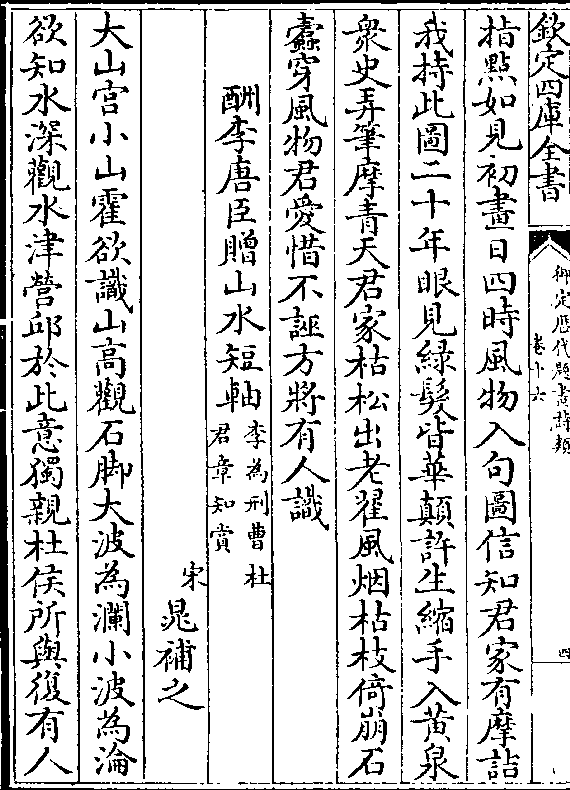 欽定四庫全書
御定歴代題畫詩類
卷十六
四
指點如見初畫一日四時風物入句圖信知君家有摩詰
我持此圖二十年眼見緑髮皆華顛許生縮手入黄泉
衆史弄筆摩青天君家枯松出老翟風烟枯枝倚崩石
蠧穿風物君愛惜不誣方將有人識
酬李唐臣贈山水短軸李為刑曹杜
君章知賞
宋晁補之
大山宫小山霍欲識山高觀石脚大波為瀾小波為淪
欲知水深觀水津營邱於此意獨親杜侯所與復有人